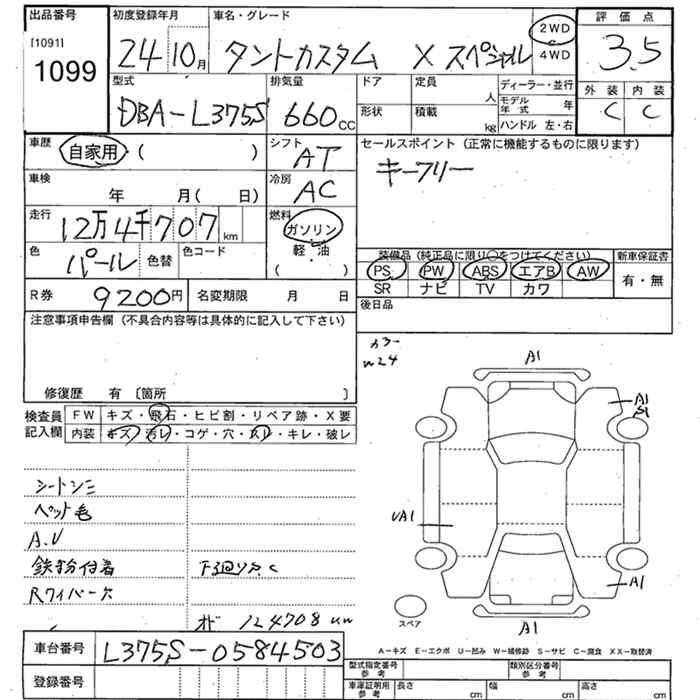 出品番号
[1091]
1099
初度登録年月
24 10月
車名・グレード
タントカスタム X スペシャル
2WD
4WD
評価点
3.5
外装 内装
C C
型式
DBA-L375S
排気量
660cc
ドア
形状
定員 人
積載 kg
ディーラー・並行
モデル年式 年
ハンドル 左・右
車歴
自家用 ( )
シフト
AT
車検 年 月( 日)
冷房
AC
走行
12万4千707km
燃料
ガソリン
軽・油
( )
色
パール
色替
色コード
R券 9200円
名変期限 月 日
セールスポイント (正常に機能するものに限ります)
キーフリー
装備品 (純正品に限り○をつけてください)
PS PW ABS エアB AW
SR ナビ TV カワ
新車保証書
有・無
後日品
注意事項申告欄 (不具合内容等は具体的に記入して下さい)
修復歴 有 〔箇所 〕
検査員
記入欄
FW キズ・飛石・ヒビ割・リペア跡・X要
内装 キズ・汚レ・コゲ・穴・スレ・キレ・破レ
カラー
W24
A1
A1
S1
UA1
A1
A1
スペア
シートシミ
ペット毛
A.U
鉄粉付着
Rワイパー欠
下廻りS.C
オド 124708km
車台番号 L375S-0584503
登録番号
A－キズ E－エクボ U－凹み W－補修跡 S－サビ C－腐食 XX－取替済
型式指定番号
参考
類別区分番号
参考
車庫証明用
参考
長さ cm
幅 cm
高さ cm